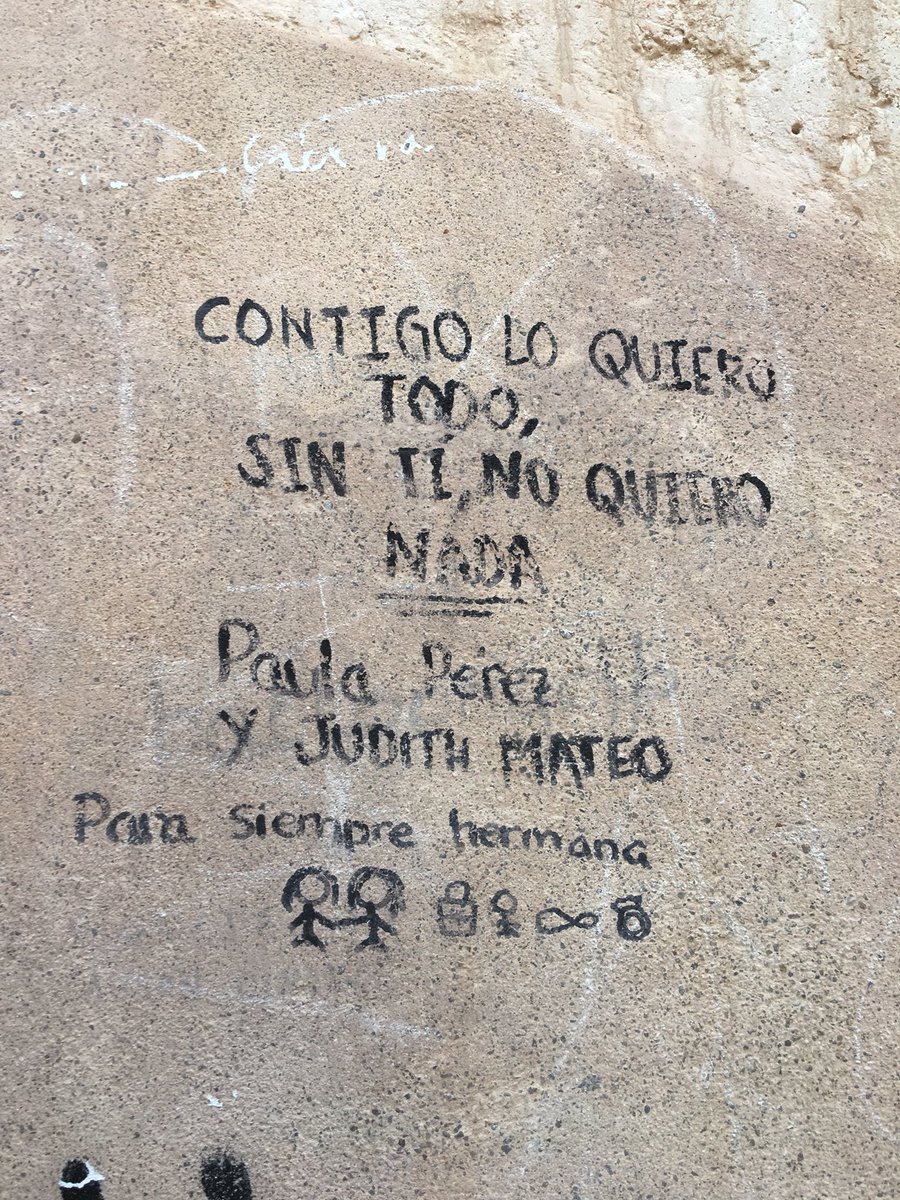 CONTIGO LO QUIERO
TODO,
SIN TÍ, NO QUIERO
NADA
Paula Pérez
Y JUDITH MATEO
Para siempre hermana